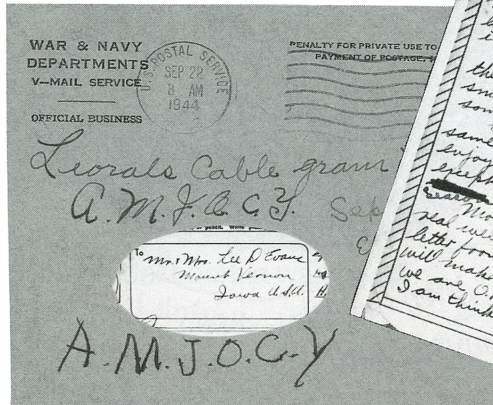 WAR & NAVY
DEPARTMENTS
V—MAIL SERVICE
OFFICIAL BUSINESS
U.S. POSTAL SERVICE
SEP 22
8 AM
1944
PENALTY FOR PRIVATE USE TO
PAYMENT OF POSTAGE,
Leorals Cable gram
A.M.J.O.C.Y. Sep
or pencil. Write
To
Mr. & Mrs. Lee D Evans
Mount Vernon
Iowa U.S.A.
A.M.J.O.C-Y
th
som
same
enjoy
Mo
real
letter
will make
we are O.
I am think